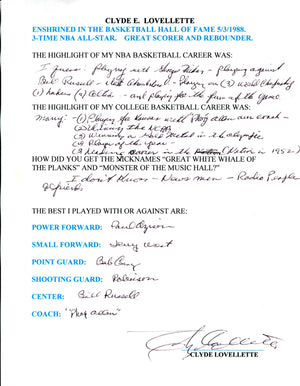 CLYDE E. LOVELLETTE
ENSHRINED IN THE BASKETBALL HALL OF FAME 5/3/1988.
3-TIME NBA-ALL-STAR. GREAT SCORER AND REBOUNDER.
THE HIGHLIGHT OF MY NBA BASKETBALL CAREER WAS:
I guess - Playing with - Playing against
Bill Russell - Wilt Chamberlain - Playing on (3) world Championship
(1) Lakers (2) Celtics - and playing for the fun of the game
THE HIGHLIGHT OF MY COLLEGE BASKETBALL CAREER WAS:
many - (1) Playing for Kansas with Phog Allen as coach -
(2) Winning the NCAA
(3) Winning a Gold Medal in the olympic
(4) Player of the year -
(5) Leading scorer in the Nation in 1952)
HOW DID YOU GET THE NICKNAMES "GREAT WHITE WHALE OF
THE PLANKS" AND "MONSTER OF THE MUSIC HALL?"
I don't Know - News men - Radio People
THE BEST I PLAYED WITH OR AGAINST ARE:
POWER FORWARD: Paul Arizin
SMALL FORWARD: Jerry West
POINT GUARD: Bob Cousy
SHOOTING GUARD: Robinson
CENTER: Bill Russell
COACH: "Phog Allen"
Clyde Lovellette
CLYDE LOVELLETTE